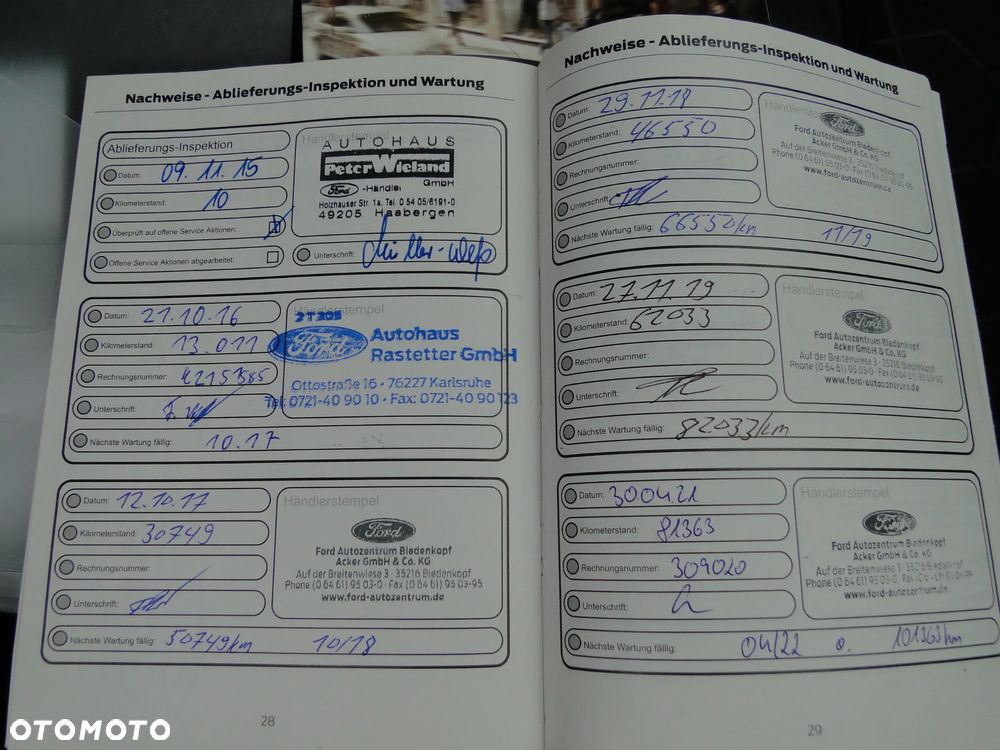 Nachweise - Ablieferungs-Inspektion und Wartung
Ablieferungs-Inspektion
Datum: 09.11.15
Kilometerstand: 10
Überprüft auf offene Service Aktionen:
Offene Service Aktionen abgearbeitet:
Händlerstempel
AUTOHAUS
Peter Wieland
GmbH
Ford -Händler
Holzhauser Str. 1a, Tel. 0 54 05/6191-0
49205 Hasbergen
Unterschrift:
Datum: 21.10.16
Kilometerstand: 13.011
Rechnungsnummer:
Unterschrift:
Nächste Wartung fällig: 10.17
Ford
Autohaus
Rastetter GmbH
Ottostraße 16 · 76227 Karlsruhe
Tel: 0721-40 90 10 · Fax: 0721-40 90 123
Datum: 12.10.17
Kilometerstand: 30749
Rechnungsnummer:
Unterschrift:
Nächste Wartung fällig: 50749km 10/18
Händlerstempel
Ford
Ford Autozentrum Biedenkopf
Acker GmbH & Co. KG
Auf der Breitenwiese 3 · 35216 Biedenkopf
Phone (0 64 61) 95 03-0 · Fax (0 64 61) 95 03-95
www.ford-autozentrum.de
28
Nachweise - Ablieferungs-Inspektion und Wartung
Datum: 29.11.18
Kilometerstand: 46550
Rechnungsnummer:
Unterschrift:
Nächste Wartung fällig: 66550/km 11/19
Händlerstempel
Ford
Ford Autozentrum Biedenkopf
Acker GmbH & Co. KG
Auf der Breitenwiese 3 · 35216 Biedenkopf
Phone (0 64 61) 95 03-0 · Fax (0 64 61) 95 03-95
www.ford-autozentrum.de
Datum: 27.11.19
Kilometerstand: 62033
Rechnungsnummer:
Unterschrift:
Nächste Wartung fällig: 82033/km
Händlerstempel
Ford
Ford Autozentrum Biedenkopf
Acker GmbH & Co. KG
Auf der Breitenwiese 3 · 35216 Biedenkopf
Phone (0 64 61) 95 03-0 · Fax (0 64 61) 95 03-95
www.ford-autozentrum.de
Datum: 300421
Kilometerstand: 81363
Rechnungsnummer: 309020
Unterschrift:
Nächste Wartung fällig: 04/22 o. 101363km
Händlerstempel
Ford
Ford Autozentrum Biedenkopf
Acker GmbH & Co. KG
Auf der Breitenwiese 3 · 35216 Biedenkopf
Phone (0 64 61) 95 03-0
www.ford-autozentrum.de
29
OTOMOTO